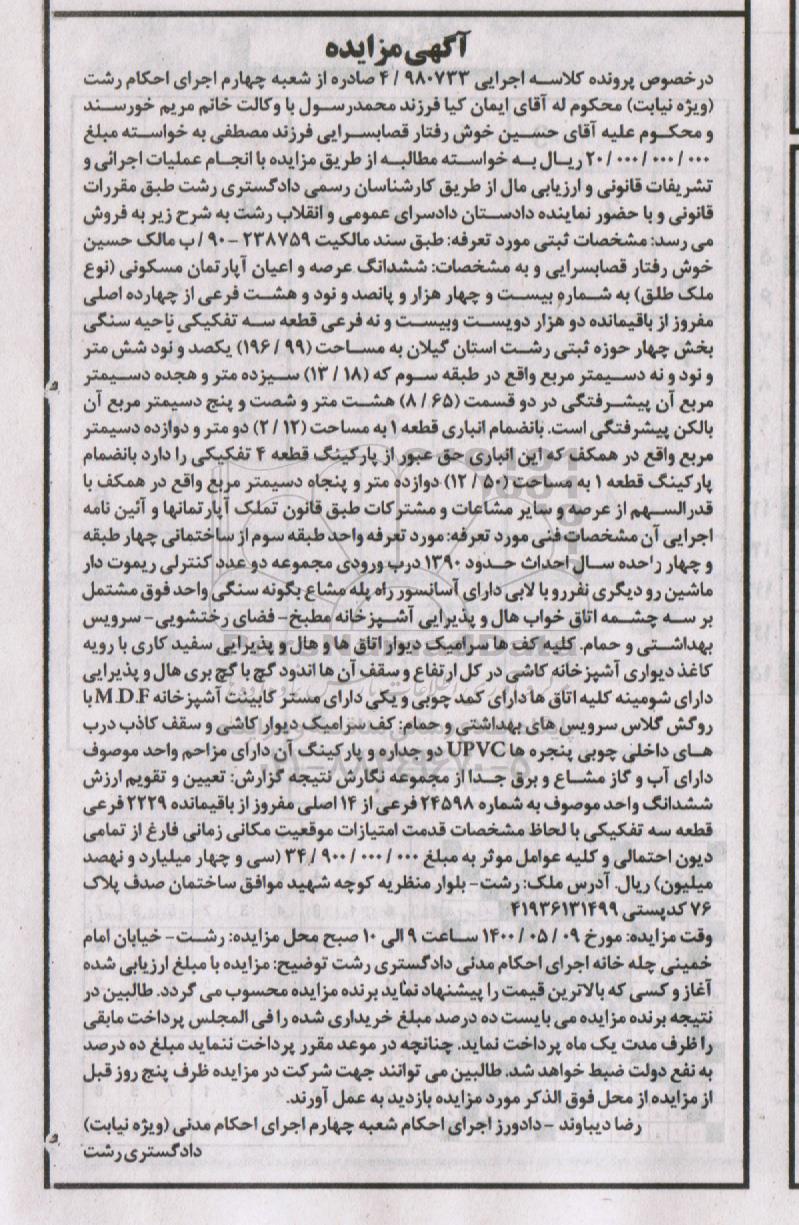 آگهی مزایده
درخصوص پرونده کلاسه اجرایی ۹۸۰۷۳۳ / ۴ صادره از شعبه چهارم اجرای احکام رشت
(ویژه نیابت) محکوم له آقای ایمان کیا فرزند محمدرسول با وکالت خانم مریم خورسند
و محکوم علیه آقای حسین خوش رفتار قصابسرایی فرزند مصطفی به خواسته مبلغ
۲۰/۰۰۰/۰۰۰/۰۰۰ ریال به خواسته مطالبه از طریق مزایده با انجام عملیات اجرائی و
تشریفات قانونی و ارزیابی مال از طریق کارشناسان رسمی دادگستری رشت طبق مقررات
قانونی و با حضور نماینده دادستان دادسرای عمومی و انقلاب رشت به شرح زیر به فروش
می رسد: مشخصات ثبتی مورد تعرفه: طبق سند مالکیت ۲۳۸۷۵۹ - ۹۰/ب مالک حسین
خوش رفتار قصابسرایی و به مشخصات: ششدانگ عرصه و اعیان آپارتمان مسکونی (نوع
ملک طلق) به شماره بیست و چهار هزار و پانصد و نود و هشت فرعی از چهارده اصلی
مفروز از باقیمانده دو هزار دویست وبیست و نه فرعی قطعه سه تفکیکی ناحیه سنگی
بخش چهار حوزه ثبتی رشت استان گیلان به مساحت (۹۹ / ۱۹۶) یکصد و نود شش متر
و نود و نه دسیمتر مربع واقع در طبقه سوم که (۱۸ / ۱۳) سیزده متر و هجده دسیمتر
مربع آن پیشرفتگی در دو قسمت (۶۵ / ۸) هشت متر و شصت و پنج دسیمتر مربع آن
بالکن پیشرفتگی است. بانضمام انباری قطعه ۱ به مساحت (۱۲ / ۲) دو متر و دوازده دسیمتر
مربع واقع در همکف که این انباری حق عبور از پارکینگ قطعه ۴ تفکیکی را دارد بانضمام
پارکینگ قطعه ۱ به مساحت (۵۰ / ۱۲) دوازده متر و پنجاه دسیمتر مربع واقع در همکف با
قدرالسهم از عرصه و سایر مشاعات و مشترکات طبق قانون تملک آپارتمانها و آئین نامه
اجرایی آن مشخصات فنی مورد تعرفه: مورد تعرفه واحد طبقه سوم از ساختمانی چهار طبقه
و چهار واحده سال احداث حدود ۱۳۹۰ درب ورودی مجموعه دو عدد کنترلی ریموت دار
ماشین رو دیگری نفررو با لابی دارای آسانسور راه پله مشاع بگونه سنگی واحد فوق مشتمل
بر سه چشمه اتاق خواب هال و پذیرایی آشپزخانه مطبخ- فضای رختشویی- سرویس
بهداشتی و حمام. کلیه کف ها سرامیک دیوار اتاق ها و هال و پذیرایی سفید کاری با رویه
کاغذ دیواری آشپزخانه کاشی در کل ارتفاع و سقف آن ها اندود گچ با گچ بری هال و پذیرایی
دارای شومینه کلیه اتاق ها دارای کمد چوبی و یکی دارای مستر کابینت آشپزخانه M.D.F با
روگش گلاس سرویس های بهداشتی و حمام: کف سرامیک دیوار کاشی و سقف کاذب درب
های داخلی چوبی پنجره ها UPVC دو جداره و پارکینگ آن دارای مزاحم واحد موصوف
دارای آب و گاز مشاع و برق جدا از مجموعه نگارش نتیجه گزارش: تعیین و تقویم ارزش
ششدانگ واحد موصوف به شماره ۲۴۵۹۸ فرعی از ۱۴ اصلی مفروز از باقیمانده ۲۲۲۹ فرعی
قطعه سه تفکیکی با لحاظ مشخصات قدمت امتیازات موقعیت مکانی زمانی فارغ از تمامی
دیون احتمالی و کلیه عوامل موثر به مبلغ ۳۴/۹۰۰/۰۰۰/۰۰۰ (سی و چهار میلیارد و نهصد
میلیون) ریال. آدرس ملک: رشت- بلوار منظریه کوچه شهید موافق ساختمان صدف پلاک
۷۶ کدپستی ۴۱۹۳۶۱۳۱۴۹۹
وقت مزایده: مورخ ۰۹ / ۰۵ / ۱۴۰۰ ساعت ۹ الی ۱۰ صبح محل مزایده: رشت- خیابان امام
خمینی چله خانه اجرای احکام مدنی دادگستری رشت توضیح: مزایده با مبلغ ارزیابی شده
آغاز و کسی که بالاترین قیمت را پیشنهاد نماید برنده مزایده محسوب می گردد. طالبین در
نتیجه برنده مزایده می بایست ده درصد مبلغ خریداری شده را فی المجلس پرداخت مابقی
را ظرف مدت یک ماه پرداخت نماید. چنانچه در موعد مقرر پرداخت ننماید مبلغ ده درصد
به نفع دولت ضبط خواهد شد. طالبین می توانند جهت شرکت در مزایده ظرف پنج روز قبل
از مزایده از محل فوق الذکر مورد مزایده بازدید به عمل آورند.
رضا دیباوند - دادورز اجرای احکام شعبه چهارم اجرای احکام مدنی (ویژه نیابت)
دادگستری رشت